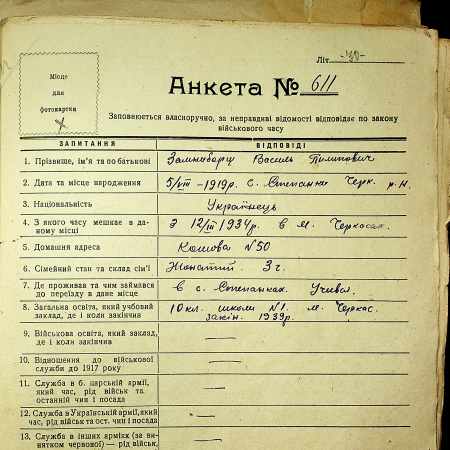 Літ. -30-
Місце
для
фотокартки
Анкета № 611
Заповнюється власноручно, за неправдиві відомості відповідає по закону
військового часу
ЗАПИТАННЯ ВІДПОВІДІ
1. Прізвище, ім'я та по батькові Василь Пилипович
2. Дата та місце народження 5/VIII-1919р. с. Степанки Черк. р-н.
3. Національність Українець
4. З якого часу мешкає в да-
ному місці З 12/III 1934р. в м. Черкасах.
5. Домашня адреса N 50
6. Сімейний стан та склад сім'ї Жонатий. 3 ч.
7. Де проживав та чим займався
до переїзду в дане місце в с. Степанках. Учивс.
8. Загальна освіта, який учбовий
заклад, де і коли закінчив 10 кл. школи N1. м. Черкас.
закін. 1939р.
9. Військова освіта, який заклад,
де і коли закінчив —
10. Відношення до військової
служби до 1917 року —
11. Служба в б. царській армії,
який час, рід військ та
останній чин і посада —
12. Служба в Українській армії, який
час, рід військ та ост. чин і посада —
13. Служба в інших арміях (за ви-
нятком червоної) — рід військ, —